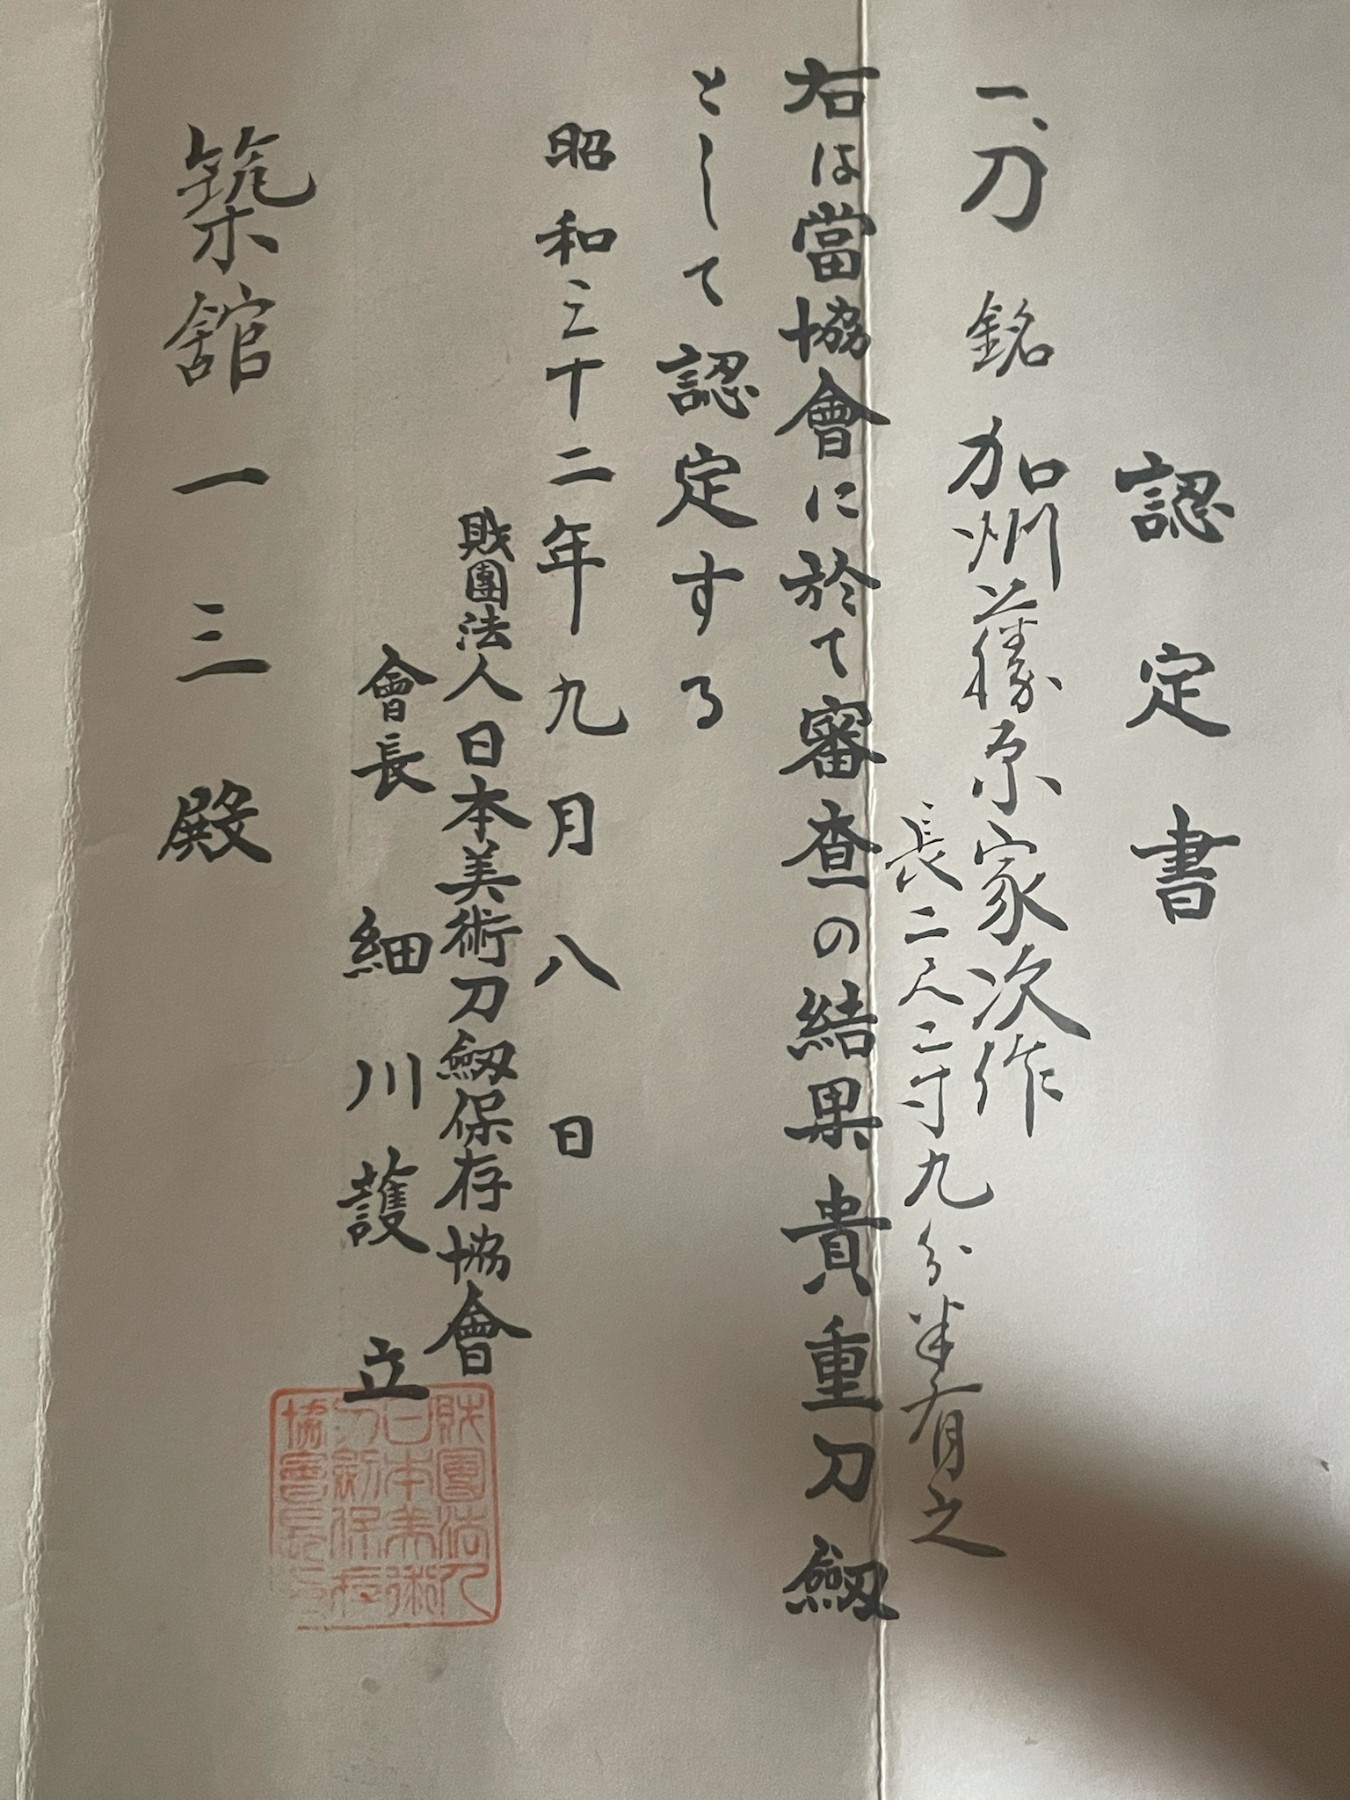 認定書
一、刀 銘 加州藤原家次作
長二尺二寸九分半有之
右は當協會に於て審査の結果貴重刀劔
として認定する
昭和三十二年九月八日
財團法人日本美術刀劔保存協會
會長 細川護立
築舘一三殿
財團法人
日本美術
刀劔保存
協會長